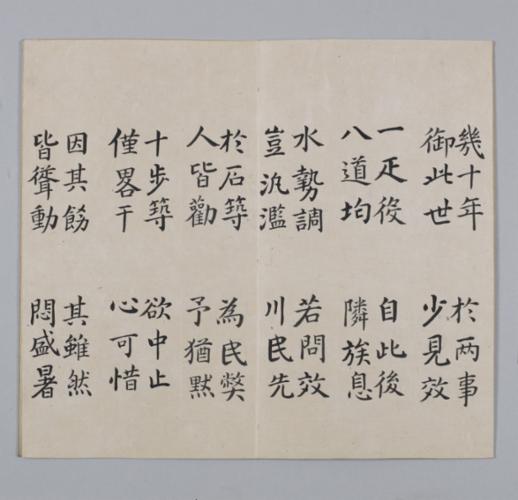 幾十年
御此世
於两事
少見效
一疋役
八道均
自此後
隣族息
水勢調
豈汎濫
若問效
川民先
於石築
人皆勸
為民獘
予猶默
十步築
僅畧干
欲中止
心可惜
因其飭
皆聳動
其雖然
悶盛暑